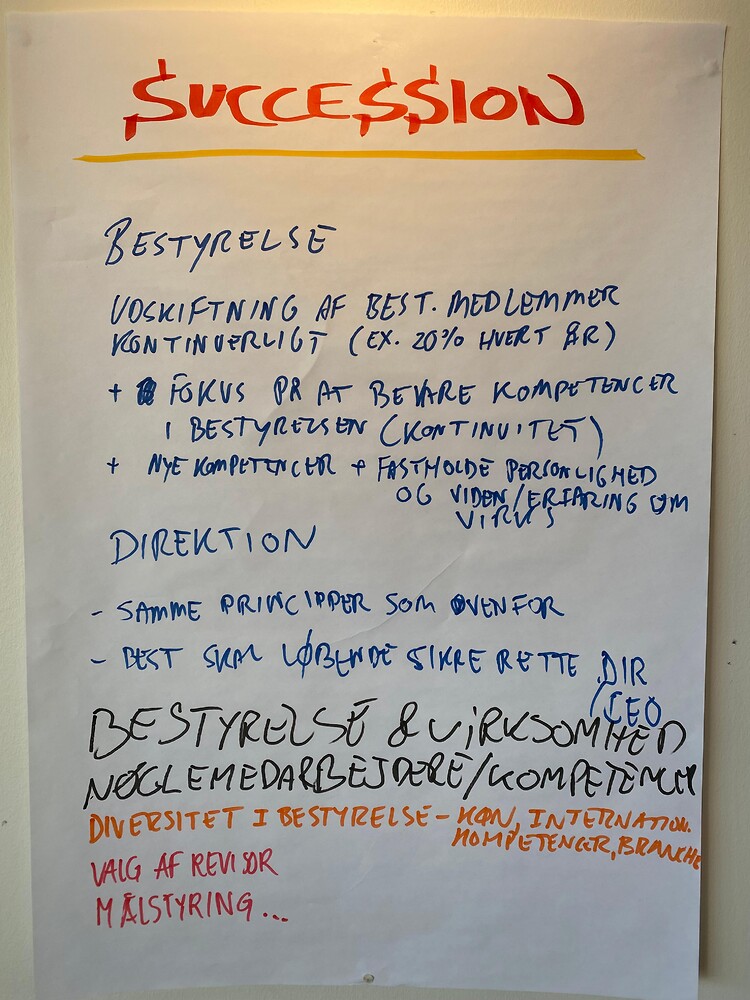 $UCCE$$ION
BESTYRELSE
UDSKIFTNING AF BEST. MEDLEMMER
KONTINUERLIGT (EX. 20% HVERT ÅR)
+ FOKUS PÅ AT BEVARE KOMPETENCER
I BESTYRELSEN (KONTINUITET)
+ NYE KOMPETENCER + FASTHOLDE PERSONLIGHED
OG VIDEN/ERFARING OM
VIRKS
DIREKTION
- SAMME PRINCIPPER SOM OVENFOR
- BEST SKAL LØBENDE SIKRE RETTE DIR
/CEO
BESTYRELSE & VIRKSOMHED
NØGLEMEDARBEJDERE/KOMPETENCER
DIVERSITET I BESTYRELSE - KØN, INTERNATION.
KOMPETENCER, BRANCHE
VALG AF REVISOR
MÅLSTYRING...